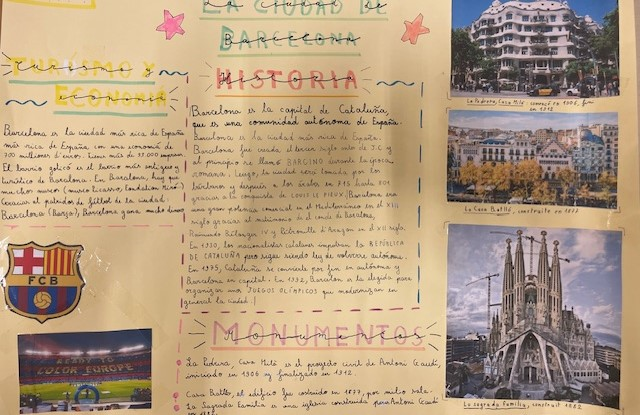 LA CIUDAD DE
BARCELONA
TURISMO Y
ECONOMIA
Barcelona es la ciudad más rica de España
más rica de España, con una economía de
700 millones d'euros. tiene más de 15.000
El barrio gotico es el barrio más antiguo y
turístico de Barcelona. En Barcelona, hay que
muchos museos (museo Picasso, fondation Miró).
Gracias al partidos de fútbol de la ciudad:
Barcelona (Barça), Barcelona gana mucho dinero
FCB
READY TO
COLOR EUROPE
HISTORIA
Barcelona es la capital de Cataluña,
que es una comunidad autónoma de España.
Barcelona es la ciudad más rica de España.
Barcelona fue el tercer siglo de J.C y
al principio se llamó BARCINO durante la época
romana. Luego, la ciudad será tomada por los
bárbaros y después a los árabes en
gracias a la conquista de LOUIS LE PIEUX. Barcelona era
una gran potencia comercial en el Mediterráneo en el XIII
siglo gracias al matrimonio del conde de Barcelona,
Raimundo IV y Pétronille d'Aragon en el XII siglo.
En 1930, los nacionalistas catalanes la REPÚBLICA
DE CATALUÑA pero sigue siendo ley de autónoma.
En 1975, Cataluña se convierte por fin en autónoma y
Barcelona en capital. En 1992, Barcelona es la elegida para
organizar los JUEGOS OLÍMPICOS que modernizan en
general la ciudad!
MONUMENTOS
La Pedrera, Casa Milà es el projecto civil de Antoni Gaudí,
iniciado en 1906 y finalizado en 1912.
Casa Batlló, el edificio fue costruido en 1877, por
La Sagrada Familia es una iglesia construida por Antoni Gaudí
La Pedrera, Casa Milà, comenzó en 1906, fini
en 1912
La Casa Batlló, construite en 1877
La sagrada Familia, construit 1882